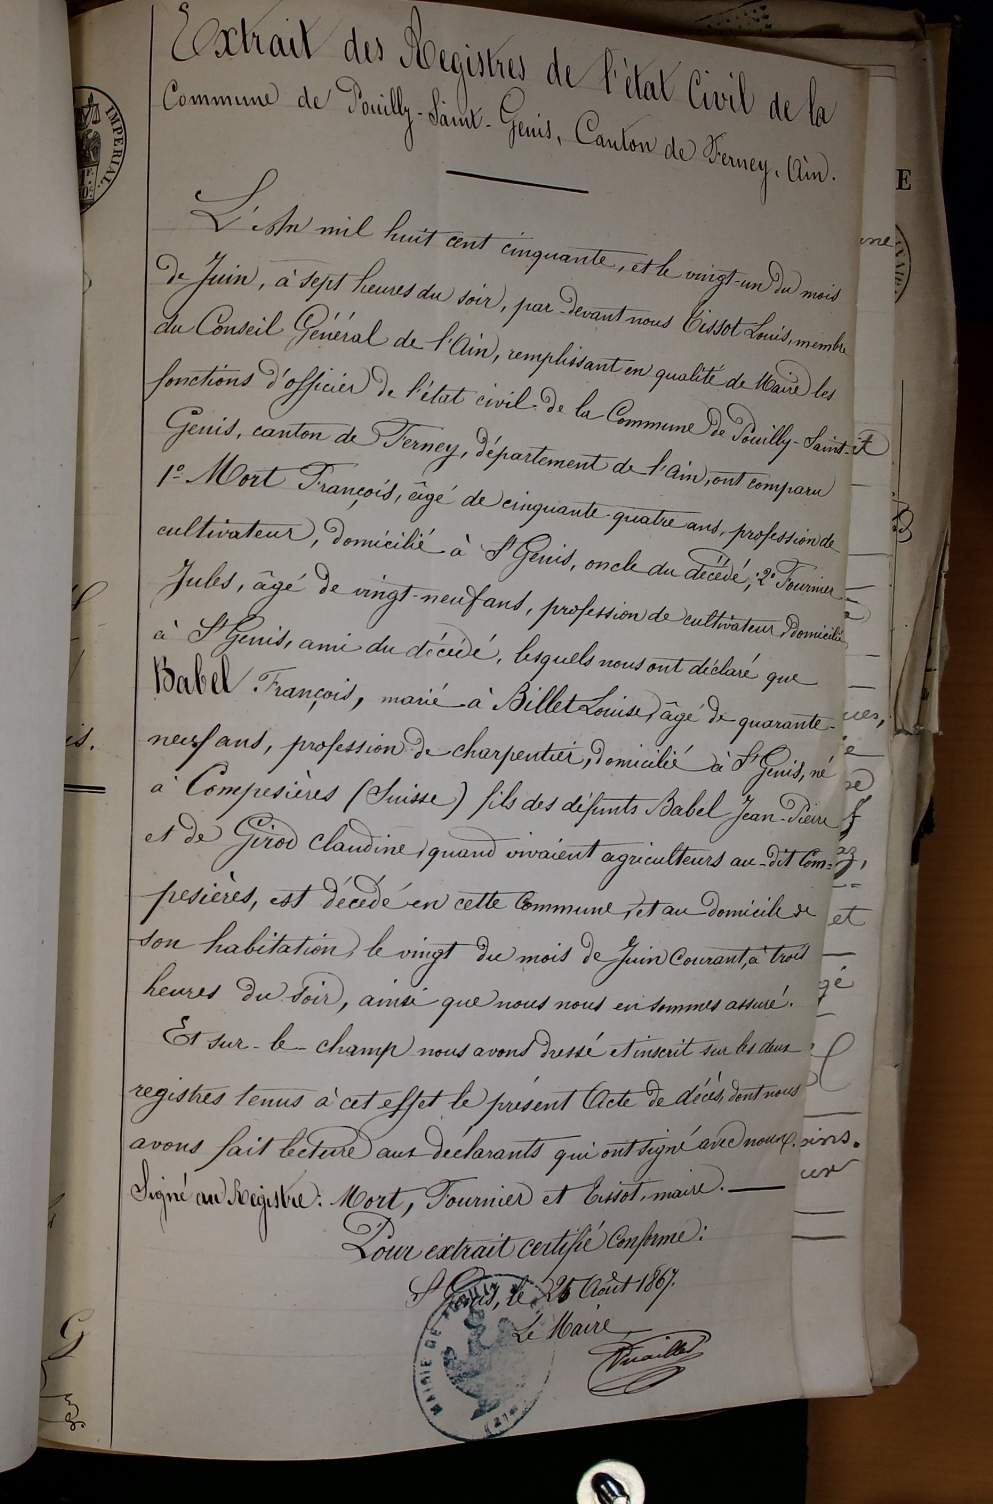 Extrait des Registres de l'état Civil de la
Commune de Pouilly-Saint-Genis, Canton de Ferney, Ain.
L'An mil huit cent cinquante, et le vingt-un du mois
de Juin, à sept heures du soir, par-devant nous Tissot Louis, membre
du Conseil Général de l'Ain, remplissant en qualité de Maire les
fonctions d'officier de l'état civil de la Commune de Pouilly-Saint-
Genis, canton de Ferney, département de l'Ain, ont comparu
1º Mort François, âgé de cinquante-quatre ans, profession de
cultivateur, domicilié à St Genis, oncle du décédé; 2º Fournier
Jules, âgé de vingt-neuf ans, profession de cultivateur, domicilié
à St Genis, ami du décédé, lesquels nous ont déclaré que
Babel François, marié à Billet Louise, âgé de quarante-
neuf ans, profession de charpentier, domicilié à St Genis, né
à Compesières (Suisse) fils des défunts Babel Jean-Pierre
et de Girod Claudine, quand vivaient agriculteurs au-dit Com-
pesières, est décédé en cette Commune, et au domicile de
son habitation, le vingt du mois de Juin Courant, à trois
heures du soir, ainsi que nous nous en sommes assuré.
Et sur-le-champ nous avons dressé et inscrit sur les deux
registres tenus à cet effet le présent Acte de décès, dont nous
avons fait lecture aux déclarants qui ont signé avec nous.
Signé au Registre: Mort, Fournier et Tissot, maire.
Pour extrait certifié Conforme:
St Genis, le 25 Août 1867.
Le Maire
MAIRIE DE POUILLY
IMPERIAL.
E
et